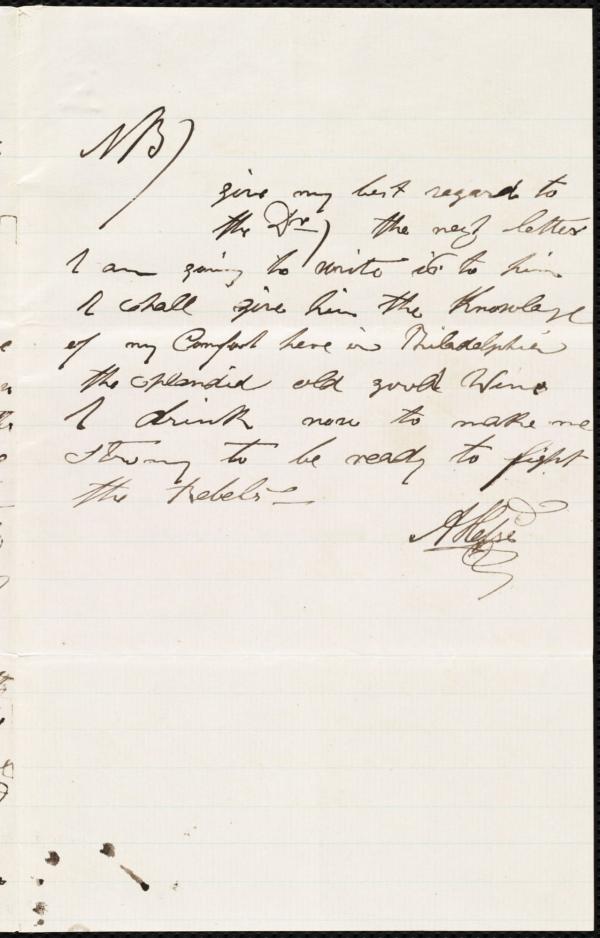 NB)
give my best regard to
the Dr) the next letter
I am going to write is to him
I shall give him the Knowlage
of my Comfort here in Philadelphia
the splendid old good Wine
I drink now to make me
strong to be ready to fight
the Rebels—